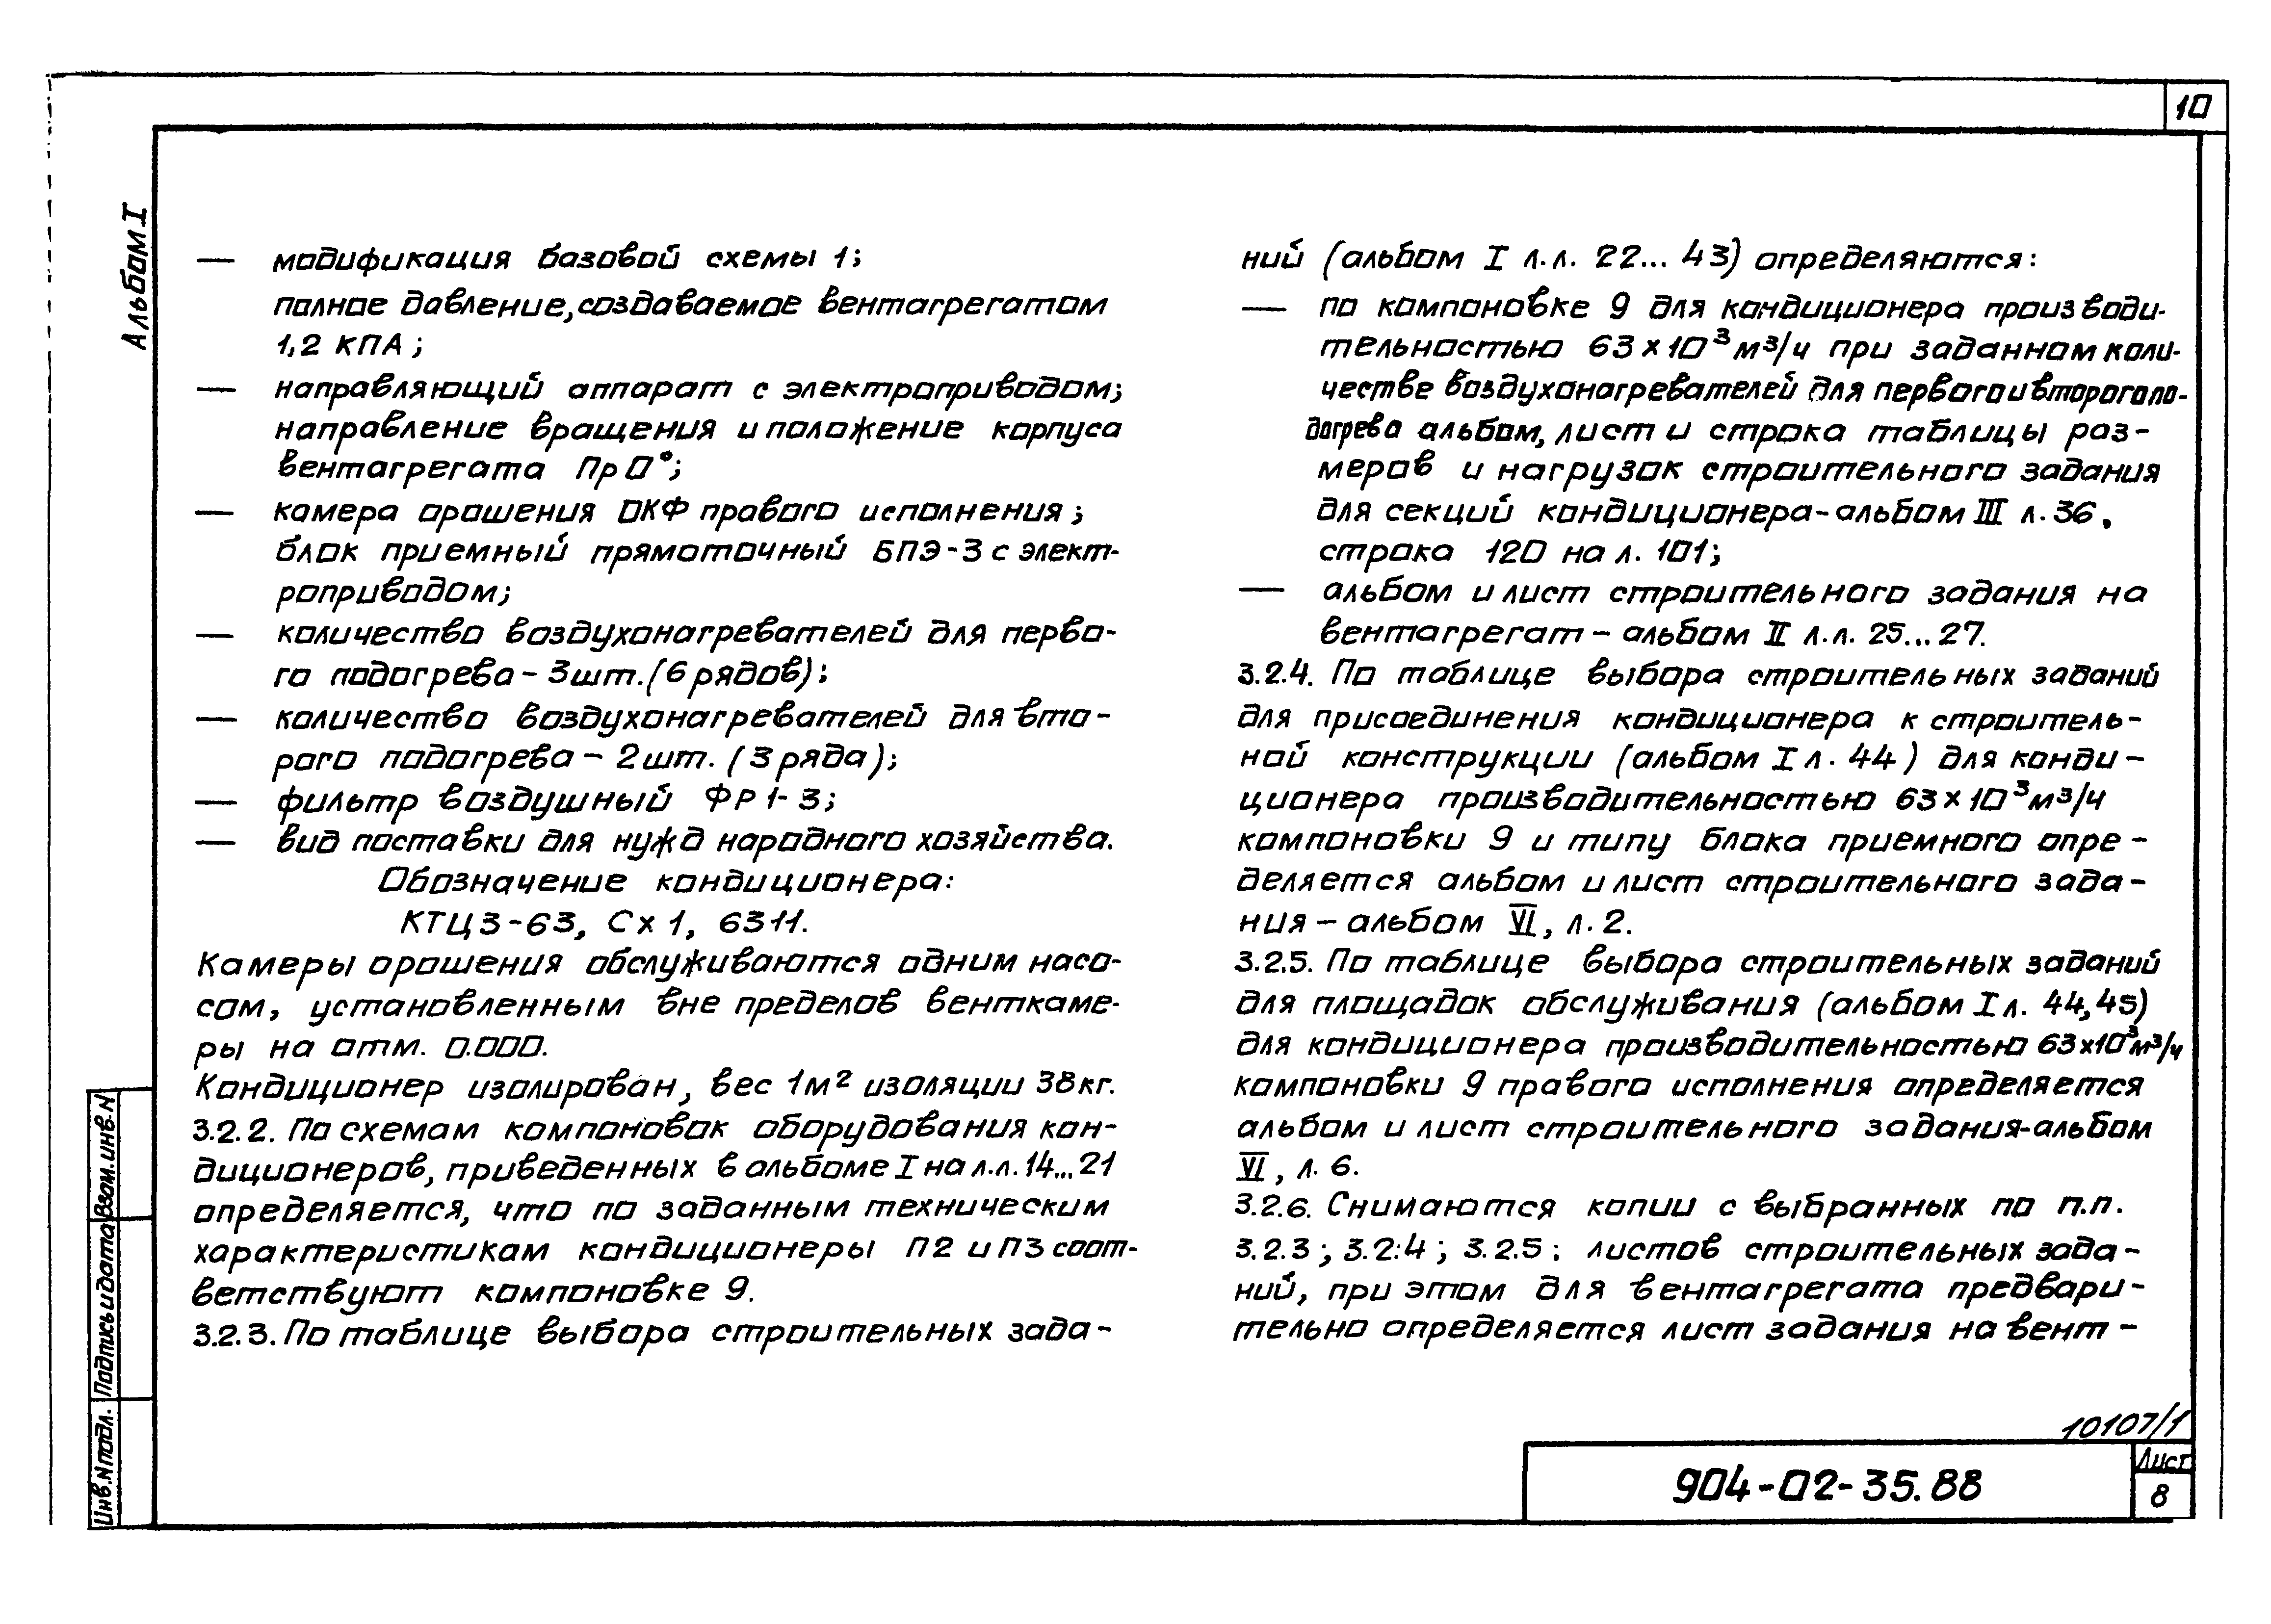 10
Альбом I
— модификация базовой схемы 1;
полное давление, создаваемое вентагрегатом
1,2 КПА;
— направляющий аппарат с электроприводом;
направление вращения и положение корпуса
вентагрегата Пр 0°;
— камера орошения ОКФ правого исполнения;
блок приемный прямоточный БПЭ-3 с элект-
роприводом;
— количество воздухонагревателей для перво-
го подогрева – 3 шт. (6 рядов);
— количество воздухонагревателей для вто-
рого подогрева – 2 шт. (3 ряда);
— фильтр воздушный ФР 1-3;
— вид поставки для нужд народного хозяйства.
Обозначение кондиционера:
КТЦ 3-63, Сх 1, 6311.
Камеры орошения обслуживаются одним насо-
сом, установленным вне пределов венткаме-
ры на отм. 0.000.
Кондиционер изолирован, вес 1м² изоляции 38кг.
3.2.2. По схемам компоновок оборудования кон-
диционеров, приведенных в альбоме I на л.л. 14...21
определяется, что по заданным техническим
характеристикам кондиционеры П2 и П3 соот-
ветствуют компоновке 9.
3.2.3. По таблице выбора строительных зада-
ний (альбом I л.л. 22... 43) определяются:
— по компоновке 9 для кондиционера производи-
тельностью 63х10³м³/ч при заданном коли-
честве воздухонагревателей для первого и второго по-
догрева альбом, лист и строка таблицы раз-
меров и нагрузок строительного задания
для секций кондиционера-альбом III л. 36,
строка 120 на л. 101;
— альбом и лист строительного задания на
вентагрегат – альбом II л.л. 25...27.
3.2.4. По таблице выбора строительных заданий
для присоединения кондиционера к строитель-
ной конструкции (альбом I л. 44) для конди-
ционера производительностью 63х10³м³/ч
компоновки 9 и типу блока приемного опре-
деляется альбом и лист строительного зада-
ния – альбом VI, л. 2.
3.2.5. По таблице выбора строительных заданий
для площадок обслуживания (альбом I л. 44,45)
для кондиционера производительностью 63х10³м³/ч
компоновки 9 правого исполнения определяется
альбом и лист строительного задания-альбом
VI, л. 6.
3.2.6. Снимаются копии с выбранных по п.п.
3.2.3; 3.2.4; 3.2.5; листов строительных зада-
ний, при этом для вентагрегата предвари-
тельно определяется лист задания на вент-
Взам. инв. N
Подпись и дата
Инв. N подл.
10107/1
904-02-35.88
Лист
8